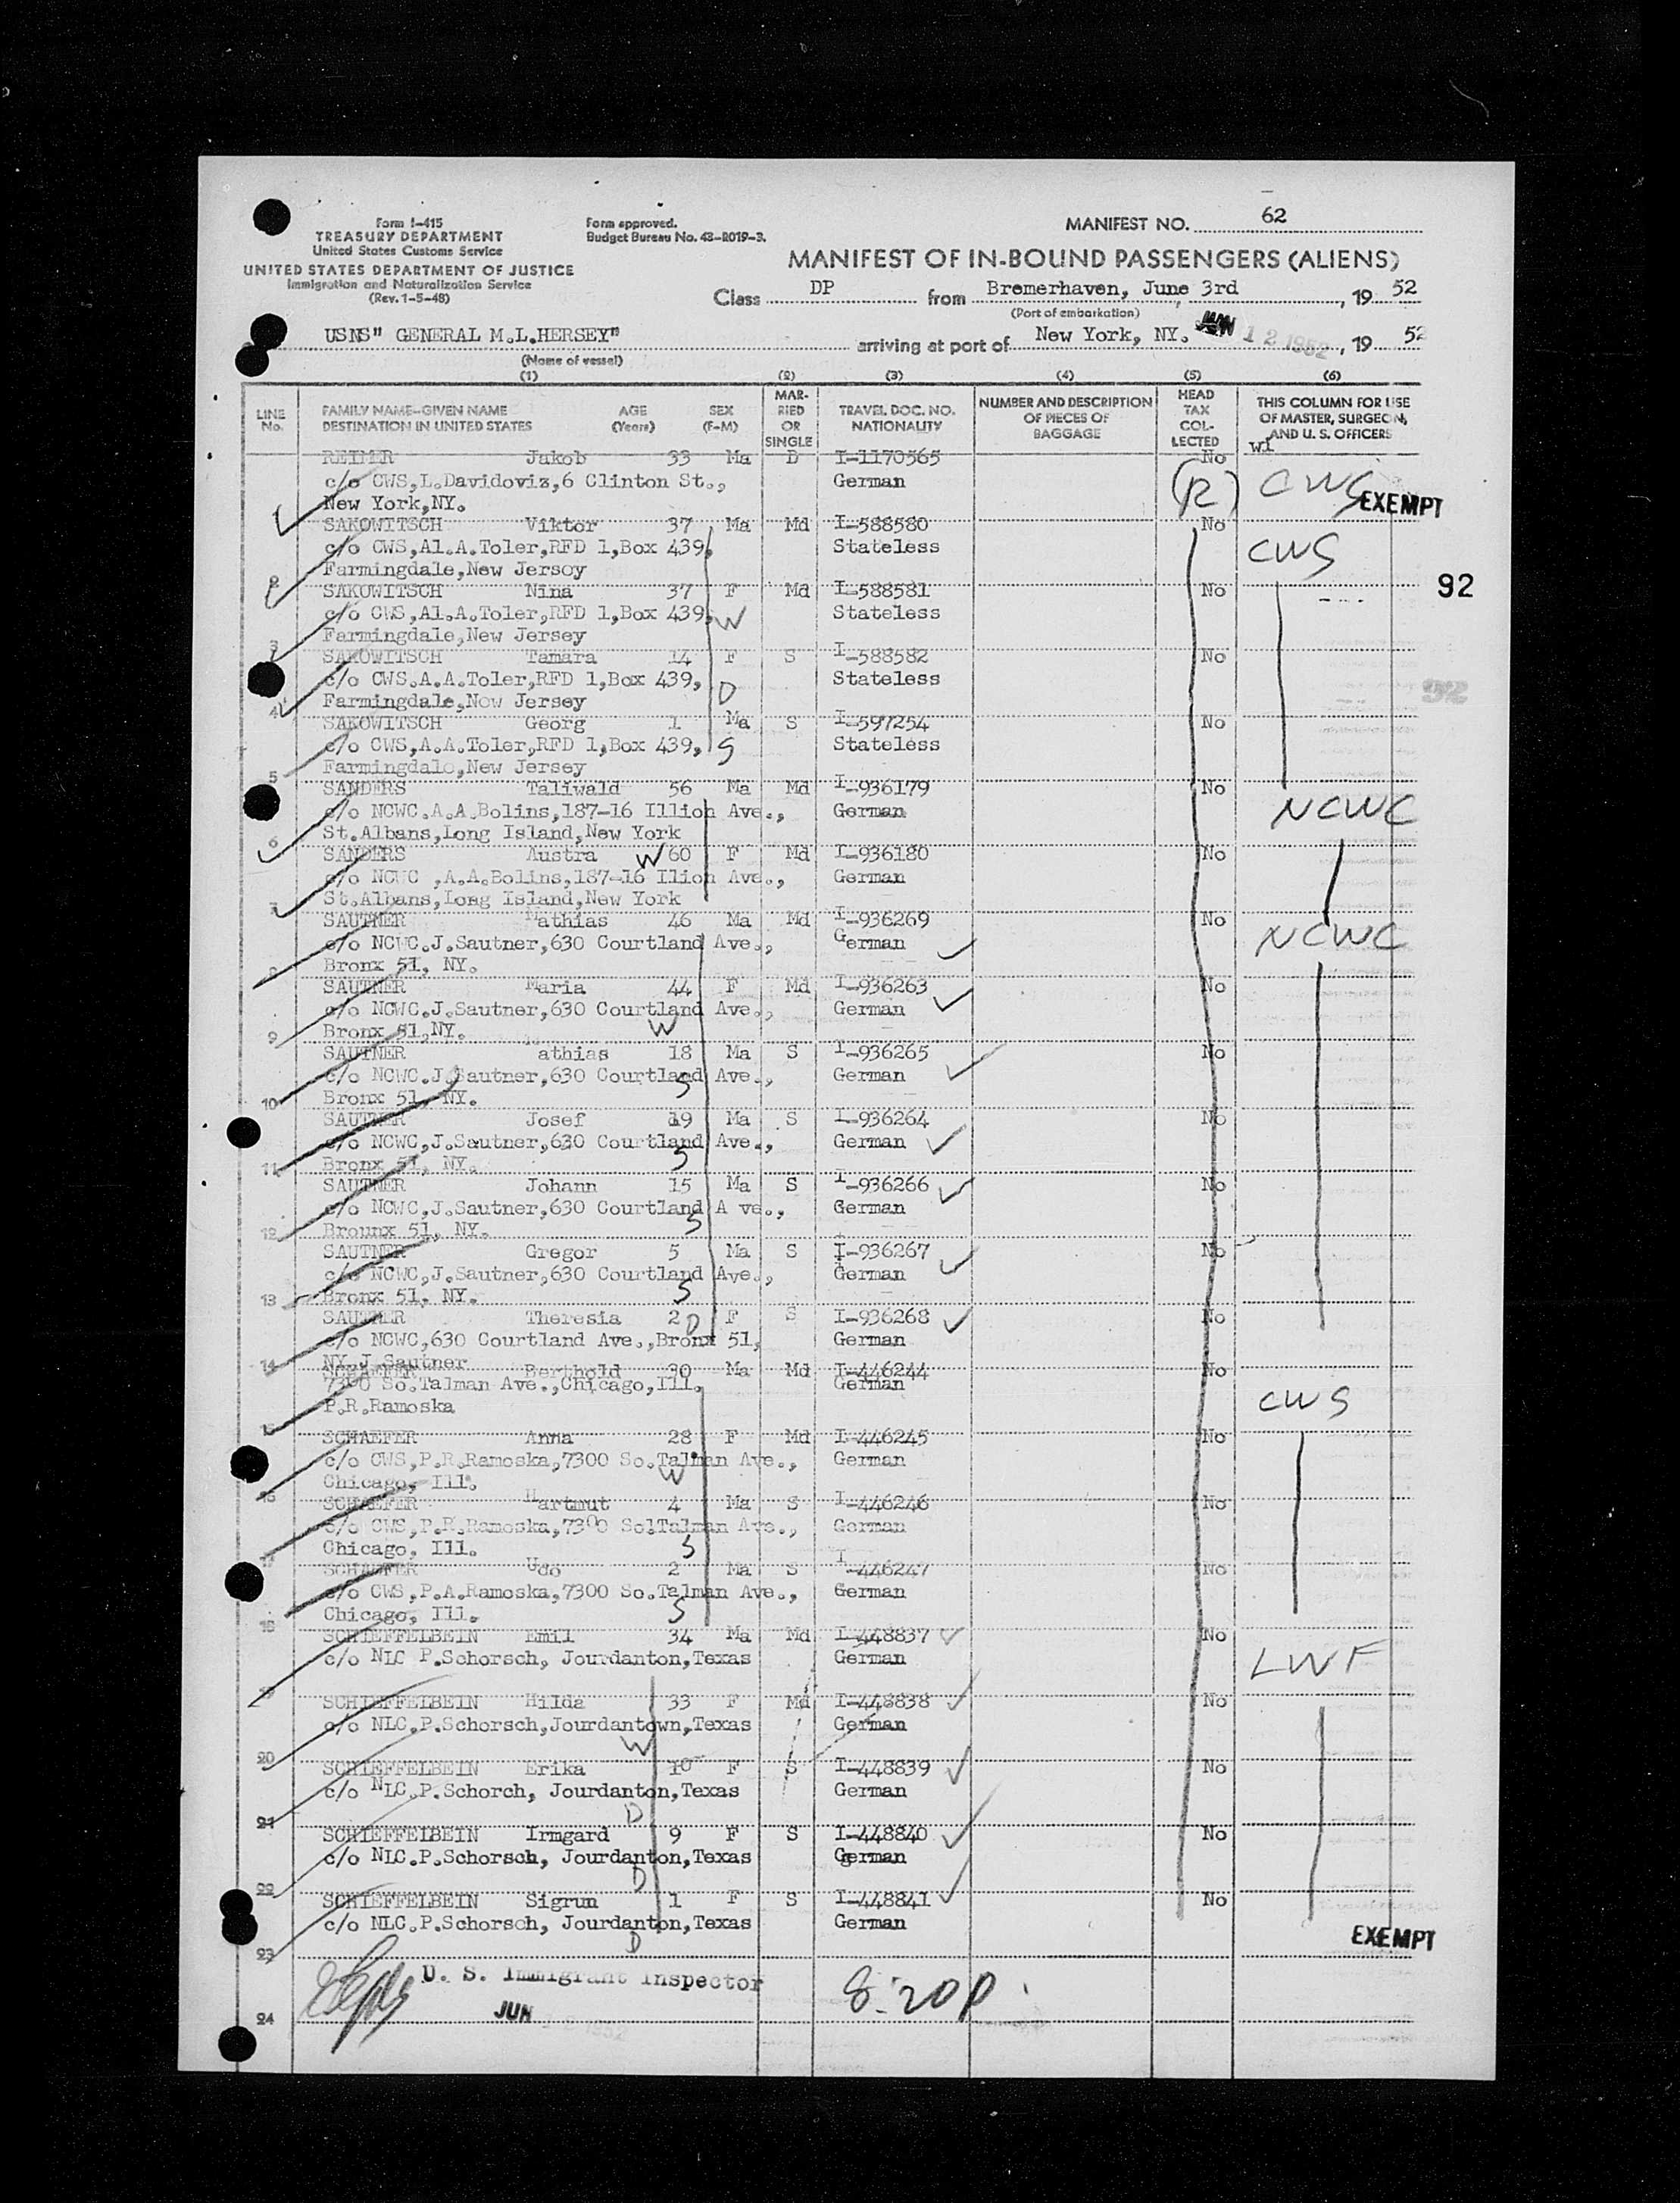 Form I-415
TREASURY DEPARTMENT
United States Customs Service
UNITED STATES DEPARTMENT OF JUSTICE
Immigration and Naturalization Service
(Rev. 1-5-48)
Form approved.
Budget Bureau No. 43-R019-3.
MANIFEST NO. 62
MANIFEST OF IN-BOUND PASSENGERS (ALIENS)
Class DP from Bremerhaven, June 3rd, 19 52
(Port of embarkation)
USNS" GENERAL M.L.HERSEY" arriving at port of New York, NY. JUN 12 1952, 19 52
(Name of vessel)
(1) (2) (3) (4) (5) (6)
LINE No. FAMILY NAME-GIVEN NAME DESTINATION IN UNITED STATES AGE (Years) SEX (F-M) MARRIED OR SINGLE TRAVEL DOC. NO. NATIONALITY NUMBER AND DESCRIPTION OF PIECES OF BAGGAGE HEAD TAX COLLECTED THIS COLUMN FOR USE OF MASTER, SURGEON, AND U. S. OFFICERS
REIMER Jakob 33 Ma D I-1170565 No
c/o CWS,L.Davidoviz,6 Clinton St., German (R) CWS EXEMPT
1 New York,NY.
SAKOWITSCH Viktor 37 Ma Md I-588580 No
c/o CWS,Al.A.Toler,RFD 1,Box 439, Stateless CWS
2 Farmingdale,New Jersoy
SAKOWITSCH Nina 37 F Md I-588581 No 92
c/o CWS,Al.A.Toler,RFD 1,Box 439, W Stateless
3 Farmingdale,New Jersey
SAKOWITSCH Tamara 14 F S I-588582 No
c/o CWS.A.A.Toler,RFD 1,Box 439, D Stateless 92
4 Farmingdale,Now Jersey
SAKOWITSCH Georg 1 Ma S I-597254 No
c/o CWS,A.A.Toler,RFD 1,Box 439, S Stateless
5 Farmingdale,New Jersey
SANDERS Taliwald 56 Ma Md I-936179 No
c/o NCWC.A.A.Bolins,187-16 Illion Ave., German NCWC
6 St.Albans,Long Island,New York
SANDERS Austra W 60 F Md I-936180 No
c/o NCWC ,A.A.Bolins,187-16 Ilion Ave., German
7 St.Albans,Long Island,New York
SAUTNER Mathias 46 Ma Md I-936269 No
c/o NCWC.J.Sautner,630 Courtland Ave., German NCWC
8 Bronx 51, NY.
SAUTNER Maria 44 F Md I-936263 No
c/o NCWC.J.Sautner,630 Courtland Ave., German
9 Bronx 51,NY. W
SAUTNER athias 18 Ma S I-936265 No
c/o NCWC.J.Sautner,630 Courtland Ave., S German
10 Bronx 51, NY.
SAUTNER Josef 19 Ma S I-936264 No
c/o NCWC,J.Sautner,630 Courtland Ave., German
11 Bronx 51, NY. S
SAUTNER Johann 15 Ma S I-936266 No
c/o NCWC,J.Sautner,630 Courtland A ve., German
12 Brounx 51, NY. S
SAUTNER Gregor 5 Ma S I-936267 No
c/o NCWC,J.Sautner,630 Courtland Ave., German
13 Bronx 51. NY. S
SAUTNER Theresia 2 D F S I-936268 No
c/o NCWC,630 Courtland Ave.,Bronx 51, German
14 NY J Sautner
SCHAEFER Berthold 30 Ma Md I-446244 No
7300 So.Talman Ave.,Chicago,Ill. German
P.R.Ramoska CWS
15
SCHAEFER Anna 28 F Md I-446245 No
c/o CWS,P.R.Ramoska,7300 So.Talman Ave., German
16 Chicago, Ill. W
SCHAEFER Hartmut 4 Ma S I-446246 No
c/o CWS,P.R.Ramoska,7300 So.Talman Ave., German
17 Chicago, Ill. S
SCHAEFER Udo 2 Ma S I-446247 No
c/o CWS,P.A.Ramoska,7300 So.Talman Ave., German
18 Chicago, Ill. S
SCHIEFFELBEIN Emil 34 Ma Md I-448837 No
c/o NLC P.Schorsch, Jourdanton,Texas German LWF
19
SCHIEFFELBEIN Hilda 33 F Md I-448838 No
c/o NLC.P.Schorsch,Jourdantown,Texas German
20 W
SCHIEFFELBEIN Erika 10 F S I-448839 No
c/o NLC.P.Schorch, Jourdanton,Texas German
21 D
SCHIEFFELBEIN Irmgard 9 F S I-448840 No
c/o NLC.P.Schorsch, Jourdanton,Texas German
22 D
SCHIEFFELBEIN Sigrun 1 F S I-448841 No
c/o NLC.P.Schorsch, Jourdanton,Texas German EXEMPT
23 D
U. S. Immigrant Inspector 8:20p.
24 JUN 12 1952